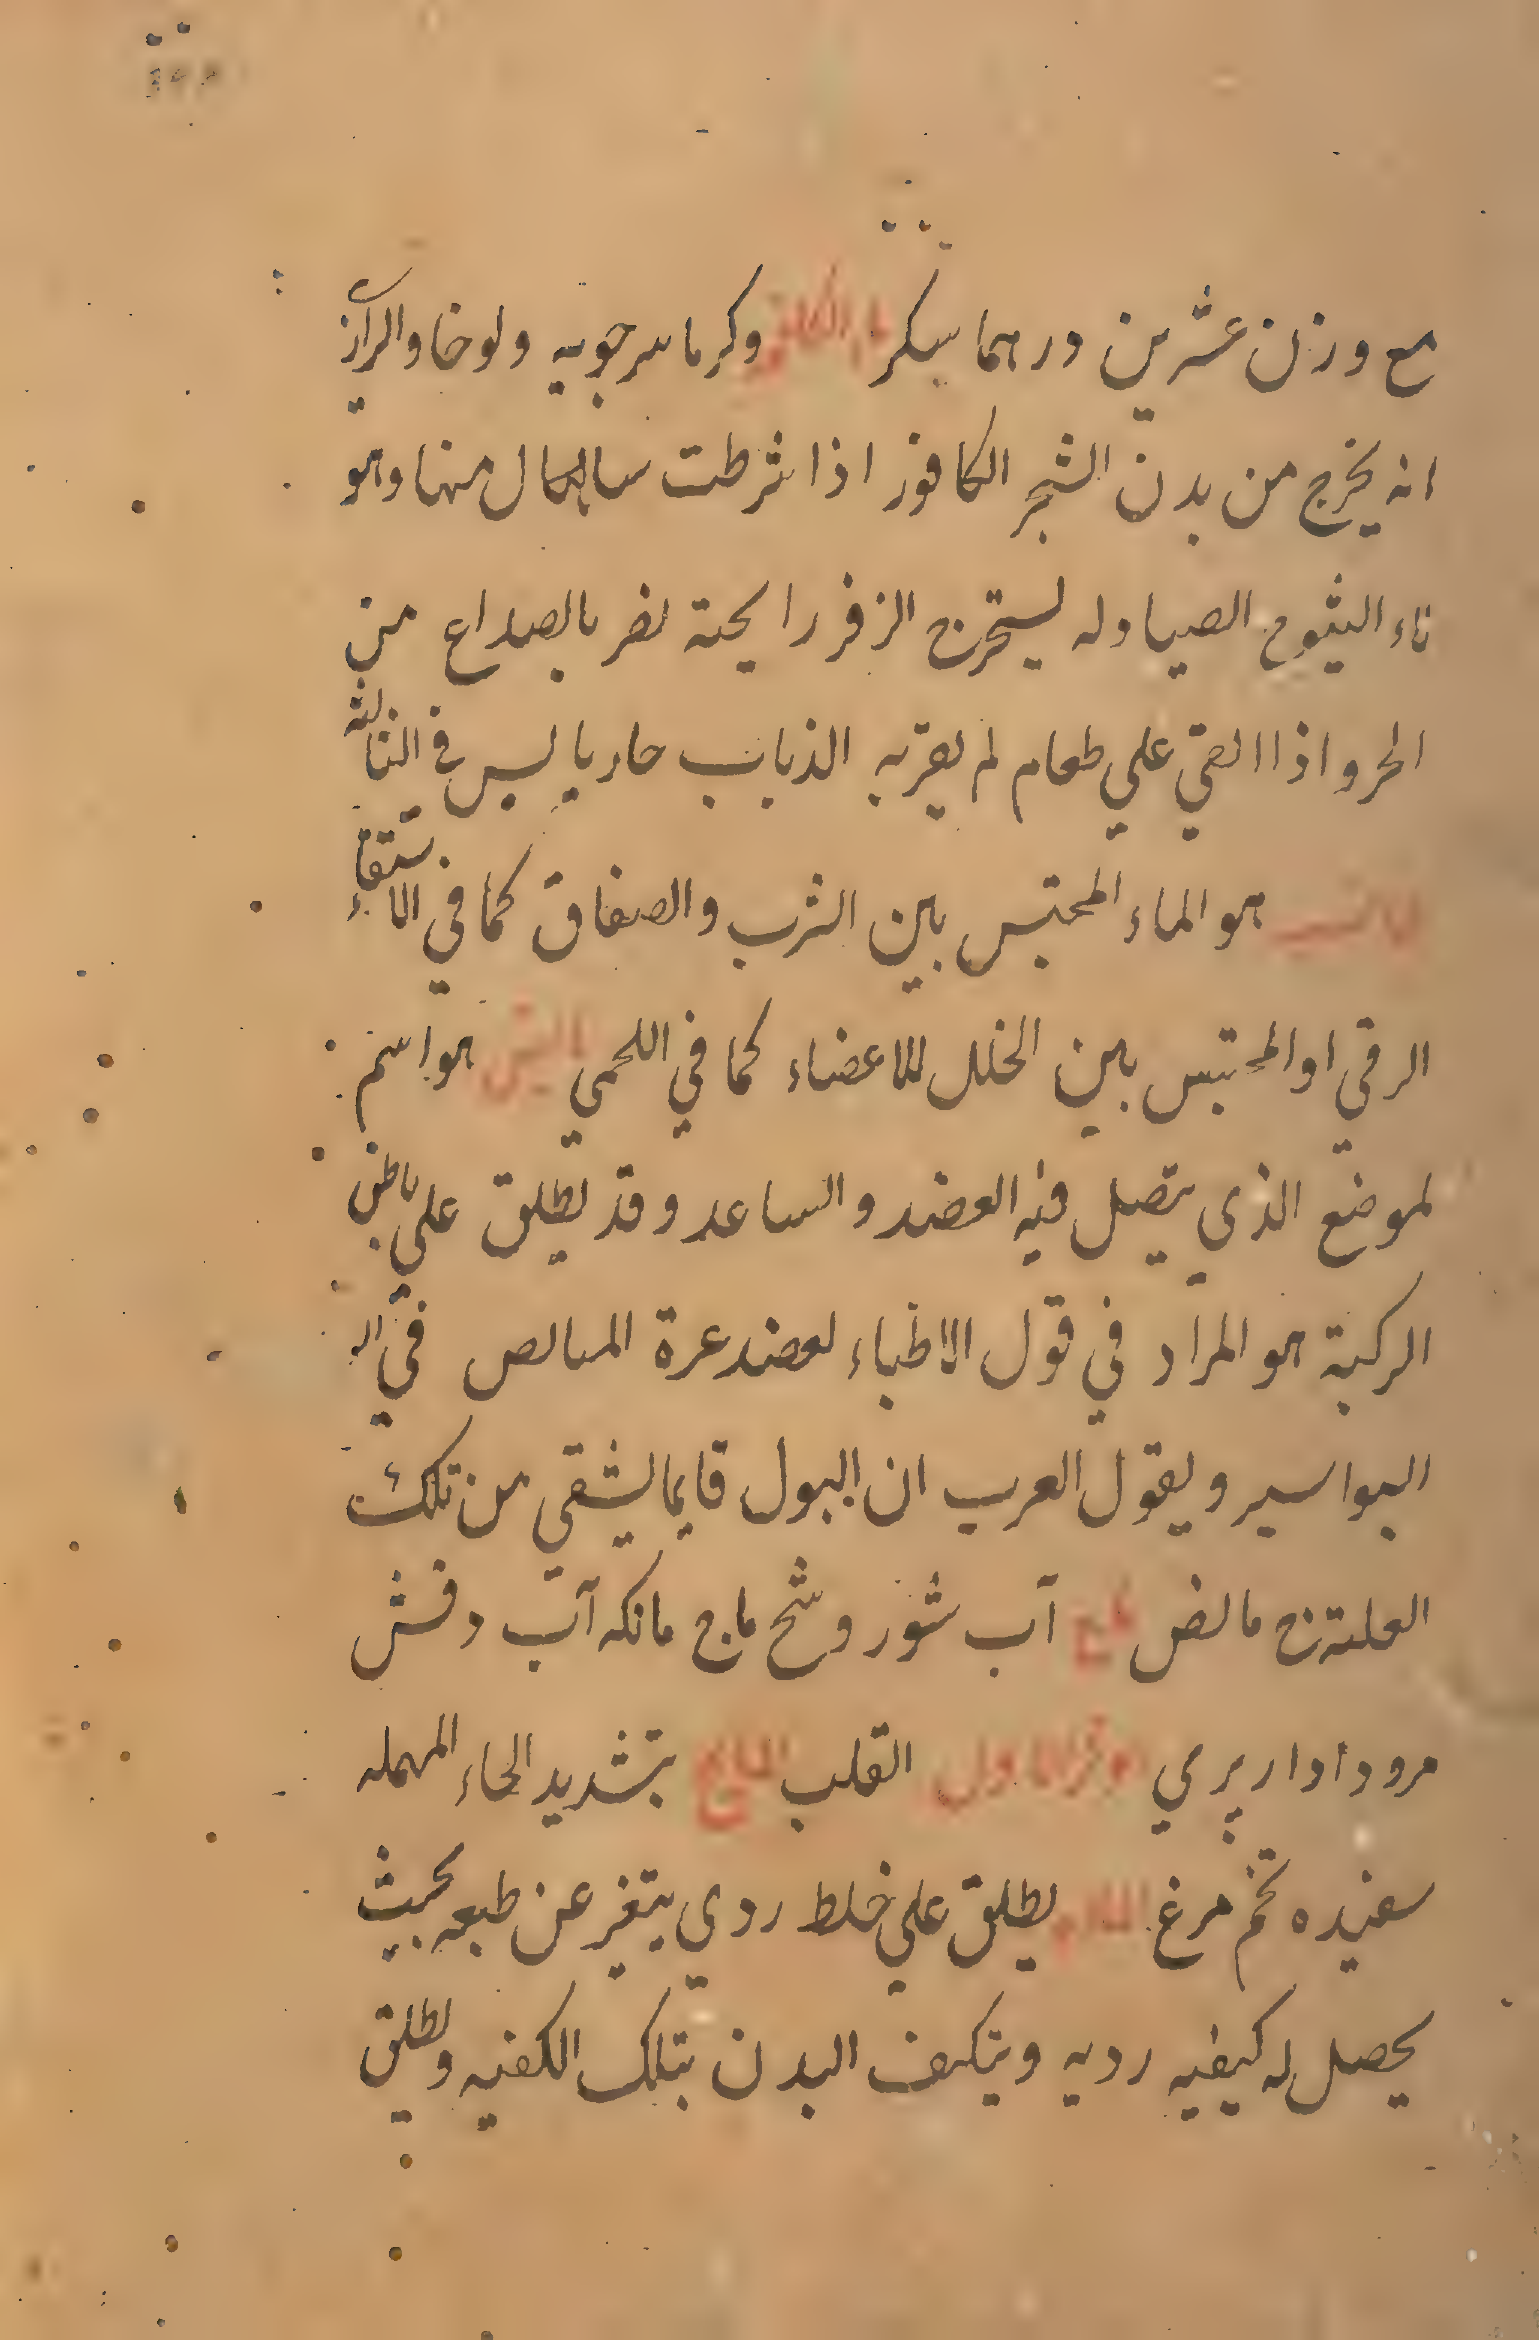 مع وزن عشرين درهما سكر ماء الكافور وكرماسرجويه ولوخا والرازي
انه يخرج من بدن الشجر الكافور اذا شرطت سال منها وهو
الصياوله ليستخرج الزفر رايحته يضر بالصداع من
الحر واذا القي علي طعام لم يقربه الذباب حار يابس في الثالثة
هو الماء المحتبس بين الثرب والصفاق كما في الاستسقاء
الزقي او المحتبس بين الخلل للاعضاء كما في اللحمي هو اسم
لموضع الذي يتصل فيه العضد والساعد وقد يطلق علي باطن
الركبة هو المراد في قول الاطباء لعضد عرة المبالص في
البواسير ويقول العرب ان البول قايما يشفي من تلك
العلة ج مالض ماج آب شور وشح ماج مانكه آب دفش
مرود ادار پري القلب الماح بتشديد الحاء المهمله
سفيده تخم مرغ يطلق علي خلط ردي يتغير عن طبعه بحيث
يحصل له كيفيه رديه ويتكيف البدن بتلك الكفيه ويطلق